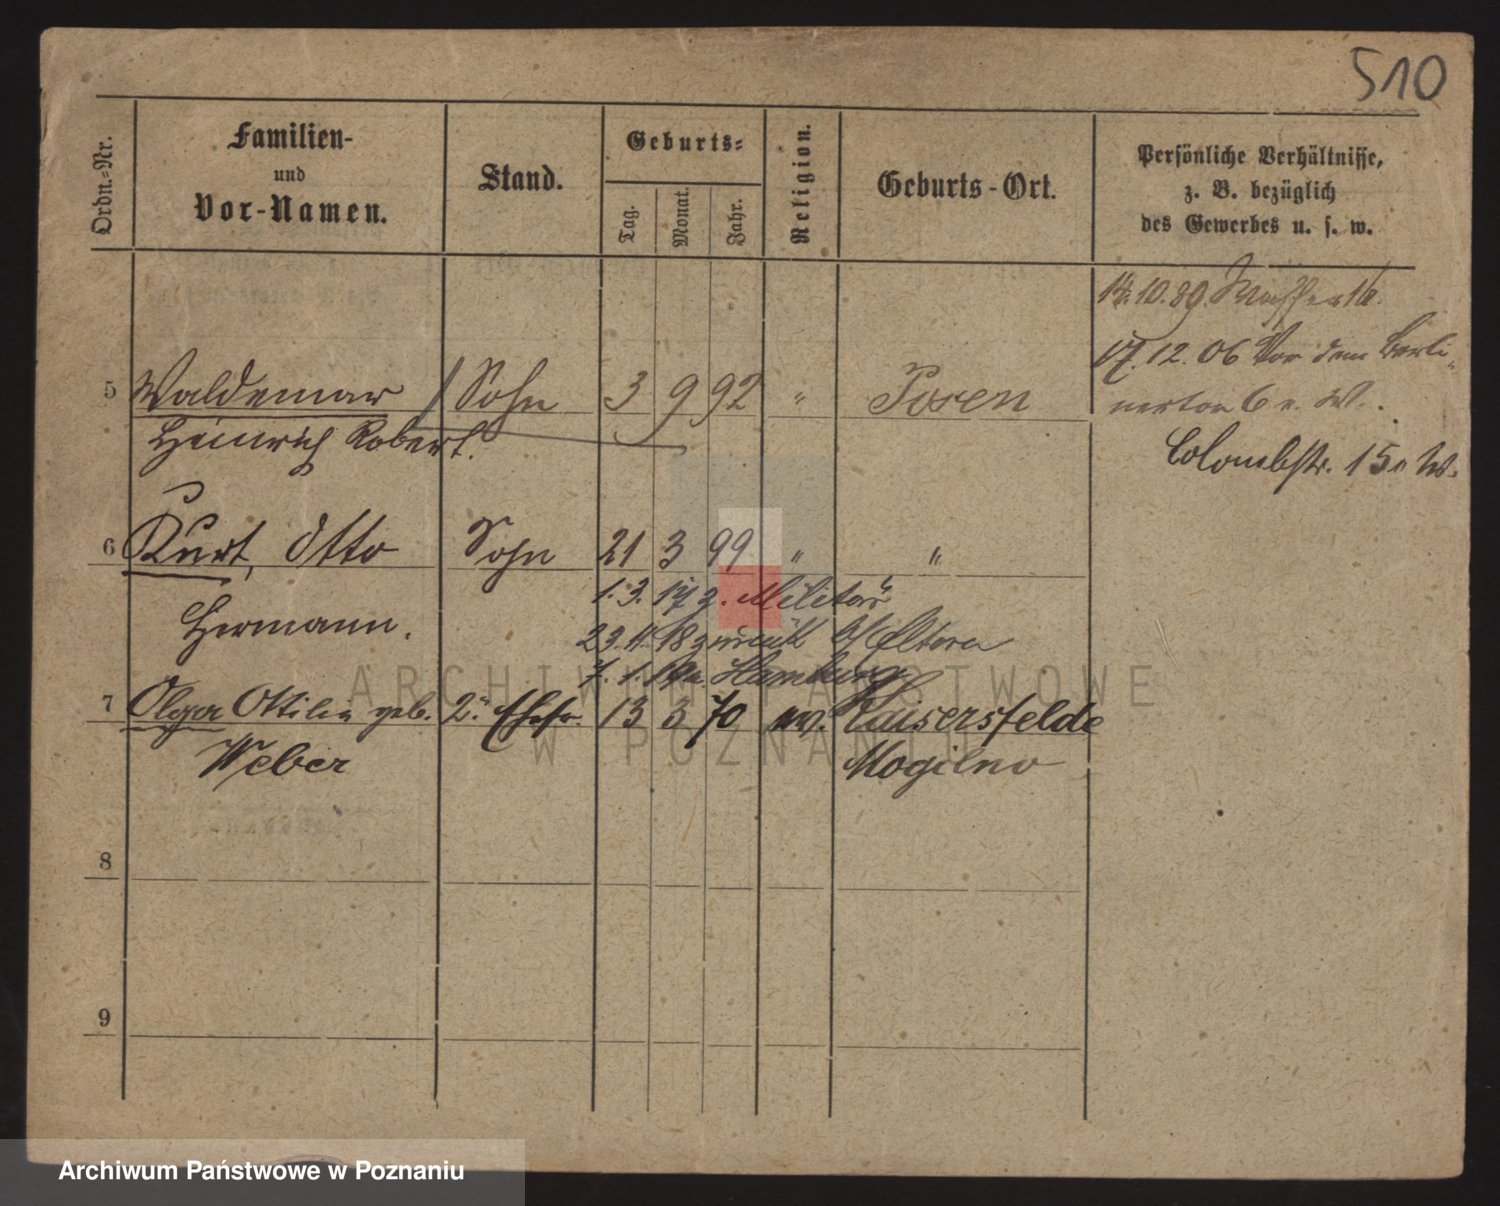 510
Ordn.-Nr.
Familien-
und
Vor-Namen.
Stand.
Geburts-
Tag.
Monat.
Jahr.
Religion.
Geburts-Ort.
Persönliche Verhältnisse,
z. B. bezüglich
des Gewerbes u. s. w.
14.10.89. Wasserstr.
17.12.06 Vor dem Berli-
nertor 6 n. W.
Colombstr. 15 n W.
5 Waldemar Sohn 3 9 92 " Posen
Heinrich Robert.
6 Kurt, Otto Sohn 21 3 99 " "
1.3.17 z. Militär
Hermann.
23.11.18 zurück Eltern
7.1.19 n. Hamburg
7 Olga Ottilie geb. 2. Ehefr. 13 3 70 ev. Kaisersfelde
Weber Mogilno
8
9
ARCHIWUM PAŃSTWOWE
W POZNANIU
Archiwum Państwowe w Poznaniu